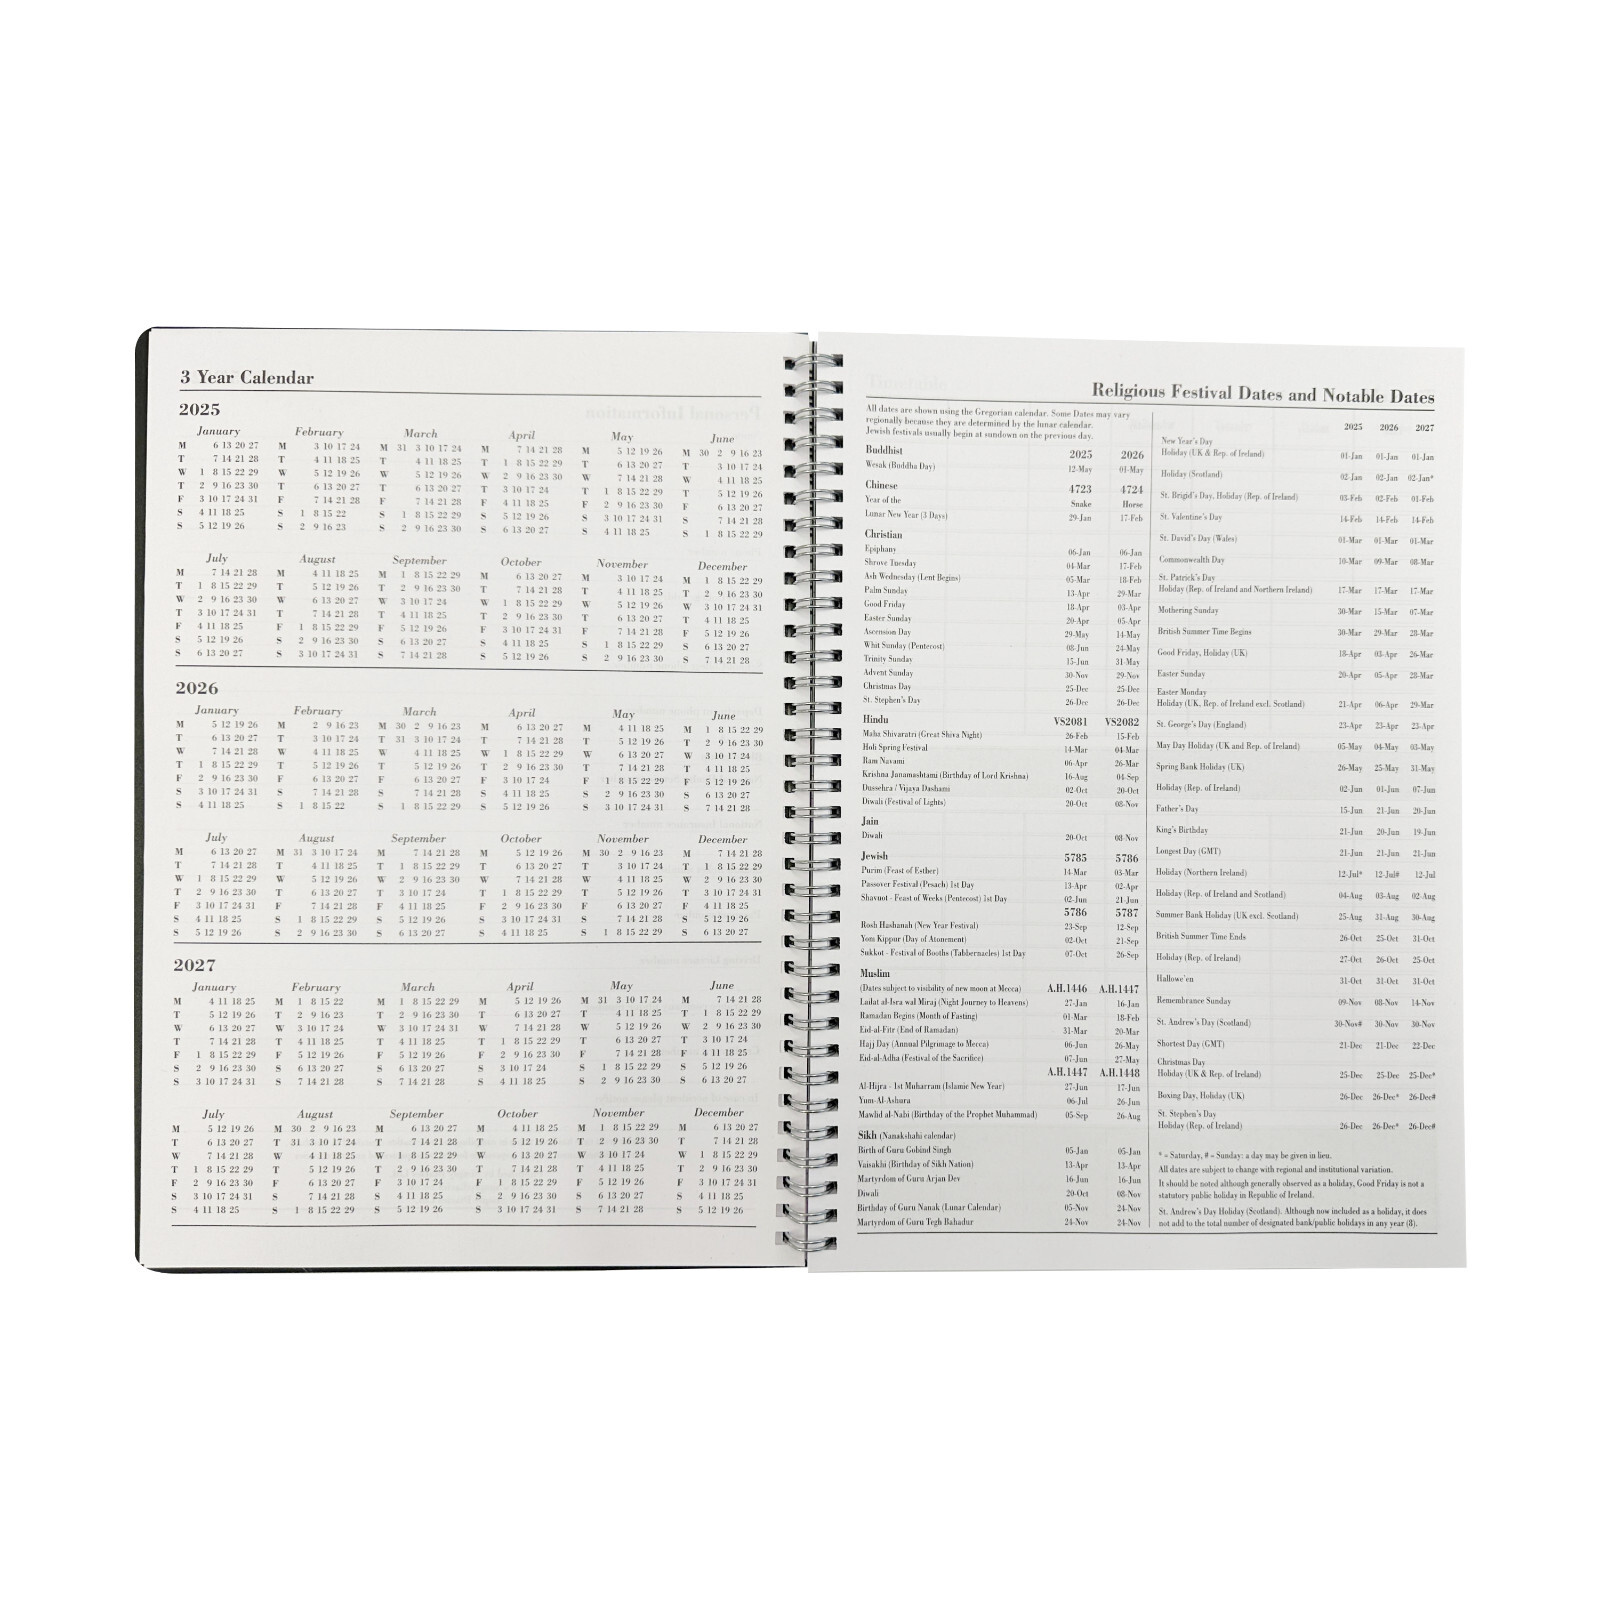 3 Year Calendar
2025
January February March April May June
M 6 13 20 27 M 3 10 17 24 M 31 3 10 17 24 M 7 14 21 28 M 5 12 19 26 M 30 2 9 16 23
T 7 14 21 28 T 4 11 18 25 T 4 11 18 25 T 1 8 15 22 29 T 6 13 20 27 T 3 10 17 24
W 1 8 15 22 29 W 5 12 19 26 W 5 12 19 26 W 2 9 16 23 30 W 7 14 21 28 W 4 11 18 25
T 2 9 16 23 30 T 6 13 20 27 T 6 13 20 27 T 3 10 17 24 T 1 8 15 22 29 T 5 12 19 26
F 3 10 17 24 31 F 7 14 21 28 F 7 14 21 28 F 4 11 18 25 F 2 9 16 23 30 F 6 13 20 27
S 4 11 18 25 S 1 8 15 22 S 1 8 15 22 29 S 5 12 19 26 S 3 10 17 24 31 S 7 14 21 28
S 5 12 19 26 S 2 9 16 23 S 2 9 16 23 30 S 6 13 20 27 S 4 11 18 25 S 1 8 15 22 29
July August September October November December
M 7 14 21 28 M 4 11 18 25 M 1 8 15 22 29 M 6 13 20 27 M 3 10 17 24 M 1 8 15 22 29
T 1 8 15 22 29 T 5 12 19 26 T 2 9 16 23 30 T 7 14 21 28 T 4 11 18 25 T 2 9 16 23 30
W 2 9 16 23 30 W 6 13 20 27 W 3 10 17 24 W 1 8 15 22 29 W 5 12 19 26 W 3 10 17 24 31
T 3 10 17 24 31 T 7 14 21 28 T 4 11 18 25 T 2 9 16 23 30 T 6 13 20 27 T 4 11 18 25
F 4 11 18 25 F 1 8 15 22 29 F 5 12 19 26 F 3 10 17 24 31 F 7 14 21 28 F 5 12 19 26
S 5 12 19 26 S 2 9 16 23 30 S 6 13 20 27 S 4 11 18 25 S 1 8 15 22 29 S 6 13 20 27
S 6 13 20 27 S 3 10 17 24 31 S 7 14 21 28 S 5 12 19 26 S 2 9 16 23 30 S 7 14 21 28
2026
January February March April May June
M 5 12 19 26 M 2 9 16 23 M 30 2 9 16 23 M 6 13 20 27 M 4 11 18 25 M 1 8 15 22 29
T 6 13 20 27 T 3 10 17 24 T 31 3 10 17 24 T 7 14 21 28 T 5 12 19 26 T 2 9 16 23 30
W 7 14 21 28 W 4 11 18 25 W 4 11 18 25 W 1 8 15 22 29 W 6 13 20 27 W 3 10 17 24
T 1 8 15 22 29 T 5 12 19 26 T 5 12 19 26 T 2 9 16 23 30 T 7 14 21 28 T 4 11 18 25
F 2 9 16 23 30 F 6 13 20 27 F 6 13 20 27 F 3 10 17 24 F 1 8 15 22 29 F 5 12 19 26
S 3 10 17 24 31 S 7 14 21 28 S 7 14 21 28 S 4 11 18 25 S 2 9 16 23 30 S 6 13 20 27
S 4 11 18 25 S 1 8 15 22 S 1 8 15 22 29 S 5 12 19 26 S 3 10 17 24 31 S 7 14 21 28
July August September October November December
M 6 13 20 27 M 31 3 10 17 24 M 7 14 21 28 M 5 12 19 26 M 30 2 9 16 23 M 7 14 21 28
T 7 14 21 28 T 4 11 18 25 T 1 8 15 22 29 T 6 13 20 27 T 3 10 17 24 T 1 8 15 22 29
W 1 8 15 22 29 W 5 12 19 26 W 2 9 16 23 30 W 7 14 21 28 W 4 11 18 25 W 2 9 16 23 30
T 2 9 16 23 30 T 6 13 20 27 T 3 10 17 24 T 1 8 15 22 29 T 5 12 19 26 T 3 10 17 24 31
F 3 10 17 24 31 F 7 14 21 28 F 4 11 18 25 F 2 9 16 23 30 F 6 13 20 27 F 4 11 18 25
S 4 11 18 25 S 1 8 15 22 29 S 5 12 19 26 S 3 10 17 24 31 S 7 14 21 28 S 5 12 19 26
S 5 12 19 26 S 2 9 16 23 30 S 6 13 20 27 S 4 11 18 25 S 1 8 15 22 29 S 6 13 20 27
2027
January February March April May June
M 4 11 18 25 M 1 8 15 22 M 1 8 15 22 29 M 5 12 19 26 M 31 3 10 17 24 M 7 14 21 28
T 5 12 19 26 T 2 9 16 23 T 2 9 16 23 30 T 6 13 20 27 T 4 11 18 25 T 1 8 15 22 29
W 6 13 20 27 W 3 10 17 24 W 3 10 17 24 31 W 7 14 21 28 W 5 12 19 26 W 2 9 16 23 30
T 7 14 21 28 T 4 11 18 25 T 4 11 18 25 T 1 8 15 22 29 T 6 13 20 27 T 3 10 17 24
F 1 8 15 22 29 F 5 12 19 26 F 5 12 19 26 F 2 9 16 23 30 F 7 14 21 28 F 4 11 18 25
S 2 9 16 23 30 S 6 13 20 27 S 6 13 20 27 S 3 10 17 24 S 1 8 15 22 29 S 5 12 19 26
S 3 10 17 24 31 S 7 14 21 28 S 7 14 21 28 S 4 11 18 25 S 2 9 16 23 30 S 6 13 20 27
July August September October November December
M 5 12 19 26 M 30 2 9 16 23 M 6 13 20 27 M 4 11 18 25 M 1 8 15 22 29 M 6 13 20 27
T 6 13 20 27 T 31 3 10 17 24 T 7 14 21 28 T 5 12 19 26 T 2 9 16 23 30 T 7 14 21 28
W 7 14 21 28 W 4 11 18 25 W 1 8 15 22 29 W 6 13 20 27 W 3 10 17 24 W 1 8 15 22 29
T 1 8 15 22 29 T 5 12 19 26 T 2 9 16 23 30 T 7 14 21 28 T 4 11 18 25 T 2 9 16 23 30
F 2 9 16 23 30 F 6 13 20 27 F 3 10 17 24 F 1 8 15 22 29 F 5 12 19 26 F 3 10 17 24 31
S 3 10 17 24 31 S 7 14 21 28 S 4 11 18 25 S 2 9 16 23 30 S 6 13 20 27 S 4 11 18 25
S 4 11 18 25 S 1 8 15 22 29 S 5 12 19 26 S 3 10 17 24 31 S 7 14 21 28 S 5 12 19 26
Religious Festival Dates and Notable Dates
All dates are shown using the Gregorian calendar. Some Dates may vary
regionally because they are determined by the lunar calendar.
Jewish festivals usually begin at sundown on the previous day.
Buddhist 2025 2026
Wesak (Buddha Day) 12-May 01-May
Chinese 4723 4724
Year of the Snake Horse
Lunar New Year (3 Days) 29-Jan 17-Feb
Christian
Epiphany 06-Jan 06-Jan
Shrove Tuesday 04-Mar 17-Feb
Ash Wednesday (Lent Begins) 05-Mar 18-Feb
Palm Sunday 13-Apr 29-Mar
Good Friday 18-Apr 03-Apr
Easter Sunday 20-Apr 05-Apr
Ascension Day 29-May 14-May
Whit Sunday (Pentecost) 08-Jun 24-May
Trinity Sunday 15-Jun 31-May
Advent Sunday 30-Nov 29-Nov
Christmas Day 25-Dec 25-Dec
St. Stephen's Day 26-Dec 26-Dec
Hindu VS2081 VS2082
Maha Shivaratri (Great Shiva Night) 26-Feb 15-Feb
Holi Spring Festival 14-Mar 04-Mar
Ram Navami 06-Apr 26-Mar
Krishna Janamashtami (Birthday of Lord Krishna) 16-Aug 04-Sep
Dussehra / Vijaya Dashami 02-Oct 20-Oct
Diwali (Festival of Lights) 20-Oct 08-Nov
Jain
Diwali 20-Oct 08-Nov
Jewish 5785 5786
Purim (Feast of Esther) 14-Mar 03-Mar
Passover Festival (Pesach) 1st Day 13-Apr 02-Apr
Shavuot - Feast of Weeks (Pentecost) 1st Day 02-Jun 21-Jun
5786 5787
Rosh Hashanah (New Year Festival) 23-Sep 12-Sep
Yom Kippur (Day of Atonement) 02-Oct 21-Sep
Sukkot - Festival of Booths (Tabbernacles) 1st Day 07-Oct 26-Sep
Muslim
(Dates subject to visibility of new moon at Mecca) A.H.1446 A.H.1447
Lailat al-Isra wal Miraj (Night Journey to Heavens) 27-Jan 16-Jan
Ramadan Begins (Month of Fasting) 01-Mar 18-Feb
Eid-al-Fitr (End of Ramadan) 31-Mar 20-Mar
Hajj Day (Annual Pilgrimage to Mecca) 06-Jun 26-May
Eid-al-Adha (Festival of the Sacrifice) 07-Jun 27-May
A.H.1447 A.H.1448
Al-Hijra - 1st Muharram (Islamic New Year) 27-Jun 17-Jun
Yum-Al-Ashura 06-Jul 26-Jun
Mawlid al-Nabi (Birthday of the Prophet Muhammad) 05-Sep 26-Aug
Sikh (Nanakshahi calendar)
Birth of Guru Gobind Singh 05-Jan 05-Jan
Vaisakhi (Birthday of Sikh Nation) 13-Apr 13-Apr
Martyrdom of Guru Arjan Dev 16-Jun 16-Jun
Diwali 20-Oct 08-Nov
Birthday of Guru Nanak (Lunar Calendar) 05-Nov 24-Nov
Martyrdom of Guru Tegh Bahadur 24-Nov 24-Nov
2025 2026 2027
New Year's Day
Holiday (UK & Rep. of Ireland) 01-Jan 01-Jan 01-Jan
Holiday (Scotland) 02-Jan 02-Jan 02-Jan*
St. Brigid's Day, Holiday (Rep. of Ireland) 03-Feb 02-Feb 01-Feb
St. Valentine's Day 14-Feb 14-Feb 14-Feb
St. David's Day (Wales) 01-Mar 01-Mar 01-Mar
Commonwealth Day 10-Mar 09-Mar 08-Mar
St. Patrick's Day
Holiday (Rep. of Ireland and Northern Ireland) 17-Mar 17-Mar 17-Mar
Mothering Sunday 30-Mar 15-Mar 07-Mar
British Summer Time Begins 30-Mar 29-Mar 28-Mar
Good Friday, Holiday (UK) 18-Apr 03-Apr 26-Mar
Easter Sunday 20-Apr 05-Apr 28-Mar
Easter Monday
Holiday (UK, Rep. of Ireland excl. Scotland) 21-Apr 06-Apr 29-Mar
St. George's Day (England) 23-Apr 23-Apr 23-Apr
May Day Holiday (UK and Rep. of Ireland) 05-May 04-May 03-May
Spring Bank Holiday (UK) 26-May 25-May 31-May
Holiday (Rep. of Ireland) 02-Jun 01-Jun 07-Jun
Father's Day 15-Jun 21-Jun 20-Jun
King's Birthday 21-Jun 20-Jun 19-Jun
Longest Day (GMT) 21-Jun 21-Jun 21-Jun
Holiday (Northern Ireland) 12-Jul* 12-Jul# 12-Jul
Holiday (Rep. of Ireland and Scotland) 04-Aug 03-Aug 02-Aug
Summer Bank Holiday (UK excl. Scotland) 25-Aug 31-Aug 30-Aug
British Summer Time Ends 26-Oct 25-Oct 31-Oct
Holiday (Rep. of Ireland) 27-Oct 26-Oct 25-Oct
Hallowe'en 31-Oct 31-Oct 31-Oct
Remembrance Sunday 09-Nov 08-Nov 14-Nov
St. Andrew's Day (Scotland) 30-Nov# 30-Nov 30-Nov
Shortest Day (GMT) 21-Dec 21-Dec 22-Dec
Christmas Day
Holiday (UK & Rep. of Ireland) 25-Dec 25-Dec 25-Dec*
Boxing Day, Holiday (UK) 26-Dec 26-Dec* 26-Dec#
St. Stephen's Day
Holiday (Rep. of Ireland) 26-Dec 26-Dec* 26-Dec#
* = Saturday, # = Sunday: a day may be given in lieu.
All dates are subject to change with regional and institutional variation.
It should be noted although generally observed as a holiday, Good Friday is not a
statutory public holiday in Republic of Ireland.
St. Andrew's Day Holiday (Scotland). Although now included as a holiday, it does
not add to the total number of designated bank/public holidays in any year (8).